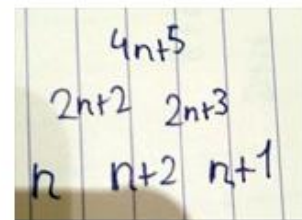 4n+5
2n+2 2n+3
n n+2 n+1